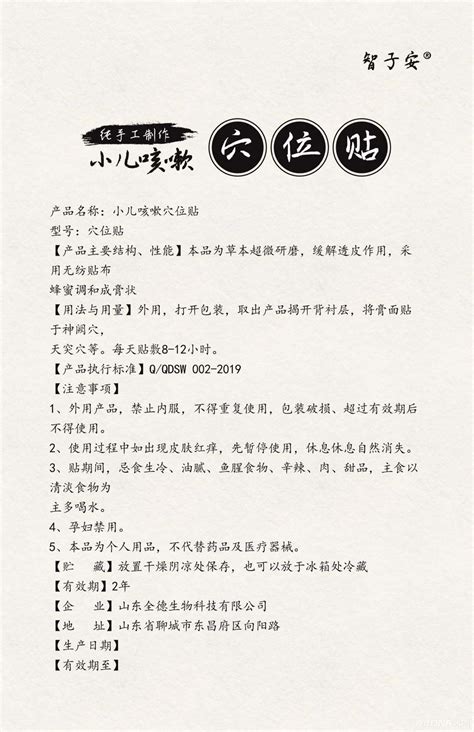 智子安®
纯手工制作
小儿咳嗽 穴位贴
产品名称：小儿咳嗽穴位贴
型号：穴位贴
【产品主要结构、性能】本品为草本超微研磨，缓解透皮作用，采
用无纺贴布
蜂蜜调和成膏状
【用法与用量】外用，打开包装，取出产品揭开背衬层，将膏面贴
于神阙穴，
天突穴等。每天贴敷8-12小时。
【产品执行标准】Q/QDSW 002-2019
【注意事项】
1、外用产品，禁止内服，不得重复使用，包装破损、超过有效期后
不得使用。
2、使用过程中如出现皮肤红痒，先暂停使用，休息休息自然消失。
3、贴期间，忌食生冷、油腻、鱼腥食物、辛辣、肉、甜品，主食以
清淡食物为
主多喝水。
4、孕妇禁用。
5、本品为个人用品，不代替药品及医疗器械。
【贮　藏】放置干燥阴凉处保存，也可以放于冰箱处冷藏
【有效期】2年
【企　业】山东全德生物科技有限公司
【地　址】山东省聊城市东昌府区向阳路
【生产日期】
【有效期至】